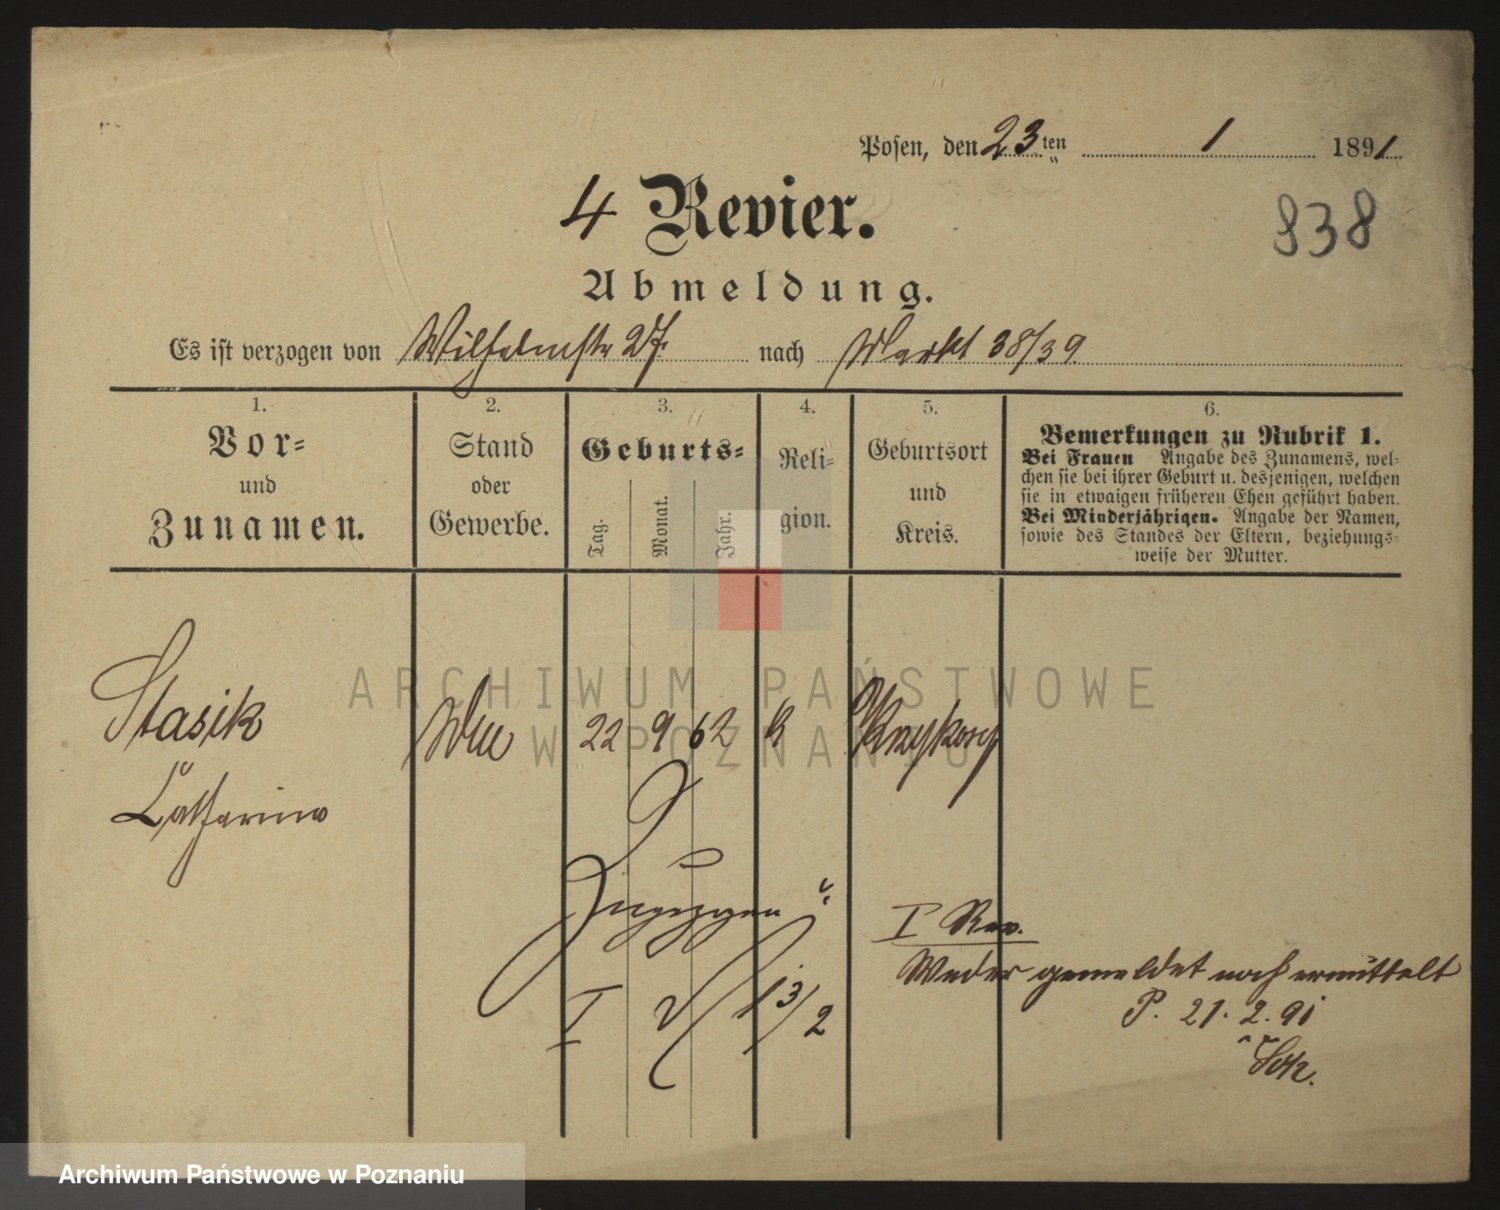 Posen, den 23ten 1 1891
838
4 Revier.
Abmeldung.
Es ist verzogen von Wilhelmstr 27. nach Markt 38/39
1.
Vor-
und
Zunamen.
2.
Stand
oder
Gewerbe.
3.
Geburts-
Tag.
Monat.
Jahr.
4.
Reli-
gion.
5.
Geburtsort
und
Kreis.
6.
Bemerkungen zu Rubrik 1.
Bei Frauen Angabe des Zunamens, wel-
chen sie bei ihrer Geburt u. desjenigen, welchen
sie in etwaigen früheren Ehen geführt haben.
Bei Minderjährigen. Angabe der Namen,
sowie des Standes der Eltern, beziehungs-
weise der Mutter.
Stasik
Catharina
22 9 62 k
I 13/2
I Rev.
Weder gemeldet noch ermittelt
P. 21. 2. 91
ARCHIWUM PAŃSTWOWE
W POZNANIU
Archiwum Państwowe w Poznaniu